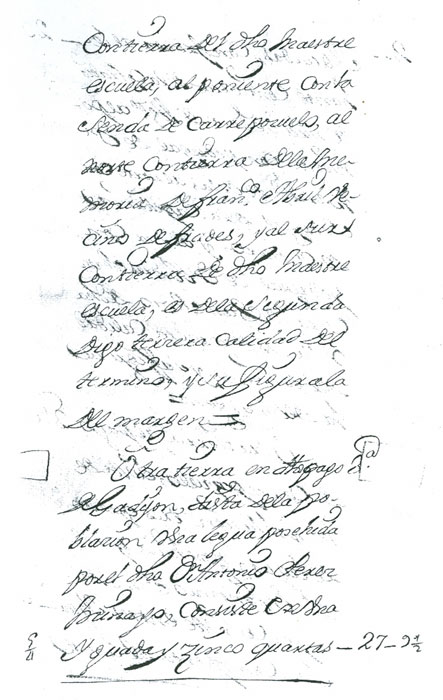 Con tierra del dho Maestre
escuela, al poniente con la
senda de Carrepoxuelo, al
norte con tierra de la Me-
moria de Fran.co Abril Ve-
cino de frades, y al sur
Con tierra, de dho Maestre
escuela, es de la Segunda
digo terzera calidad del
termino, y su figura la
del margen =
Otra tierra en dho pago 2.a
de , dista de la po-
blazion Una legua posehida
por el dho Dn Antonio Perez
, Consiste en Una
Yguada y Zinco quartas – 27 – 9 1/2